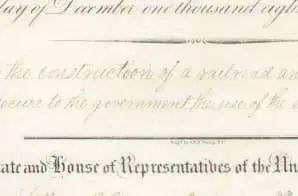 day of December one thousand eigh
the construction of a railroad an
ecure to the government the use of the
tate and House of Representatives of the Un